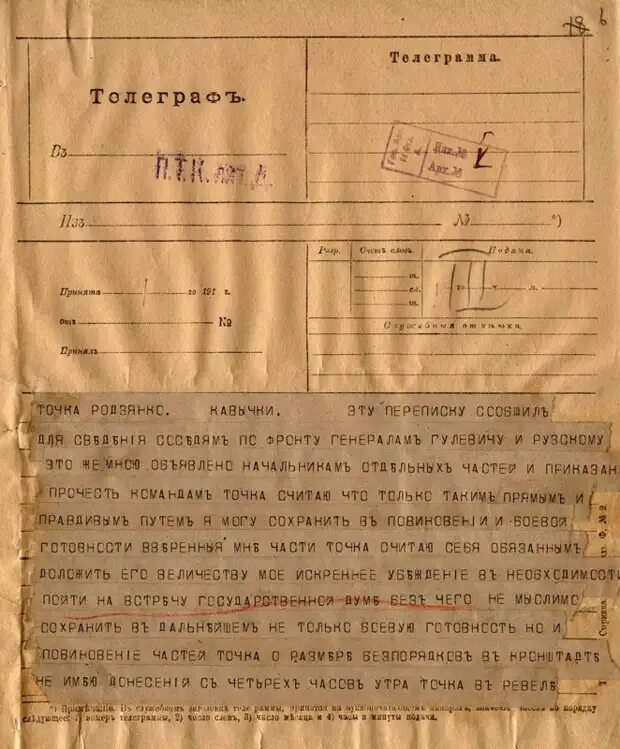 78 6
Телеграфъ.
Телеграмма.
Въ
П.Т.К.
Вх.№
Арх.№
Изъ № *)
Разр. Счетъ словъ. Подача.
III
го ч. м.
сл.
Принята го 191 г.
отъ №
Принялъ
Служебныя отмѣтки.
ТОЧКА РОДЗЯНКО. КАВЫЧКИ. ЭТУ ПЕРЕПИСКУ СООБЩИЛЪ
ДЛЯ СВѢДѢНІЯ СОСѢДЯМЪ ПО ФРОНТУ ГЕНЕРАЛАМЪ ГУЛЕВИЧУ И РУЗСКОМУ
ЭТО ЖЕ МНОЮ ОБЪЯВЛЕНО НАЧАЛЬНИКАМЪ ОТДѢЛЬНЫХЪ ЧАСТЕЙ И ПРИКАЗАН
ПРОЧЕСТЬ КОМАНДАМЪ ТОЧКА СЧИТАЮ ЧТО ТОЛЬКО ТАКИМЪ ПРЯМЫМЪ И
ПРАВДИВЫМЪ ПУТЕМЪ Я МОГУ СОХРАНИТЬ ВЪ ПОВИНОВЕНІИ И БОЕВОЙ
ГОТОВНОСТИ ВВѢРЕННЫЯ МНѢ ЧАСТИ ТОЧКА СЧИТАЮ СЕБЯ ОБЯЗАННЫМЪ
ДОЛОЖИТЬ ЕГО ВЕЛИЧЕСТВУ МОЕ ИСКРЕННЕЕ УБѢЖДЕНІЕ ВЪ НЕОБХОДИМОСТИ
ПОЙТИ НА ВСТРѢЧУ ГОСУДАРСТВЕННОЙ ДУМѢ БЕЗЪ ЧЕГО НЕ МЫСЛИМО
СОХРАНИТЬ ВЪ ДАЛЬНѢЙШЕМЪ НЕ ТОЛЬКО БОЕВУЮ ГОТОВНОСТЬ НО И
ПОВИНОВЕНІЕ ЧАСТЕЙ ТОЧКА О РАЗМѢРѢ БЕЗПОРЯДКОВЪ ВЪ КРОНШТАДТѢ
НЕ ИМѢЮ ДОНЕСЕНІЙ СЪ ЧЕТЫРЕХЪ ЧАСОВЪ УТРА ТОЧКА ВЪ РЕВЕЛѢ
Ф. № 2
*) Примѣчаніе. Въ служебномъ заголовкѣ телеграммы, значатся числа по порядку
слѣдующее: 1) номеръ телеграммы, 2) число словъ, 3) число мѣсяца и 4) часы и минуты подачи.